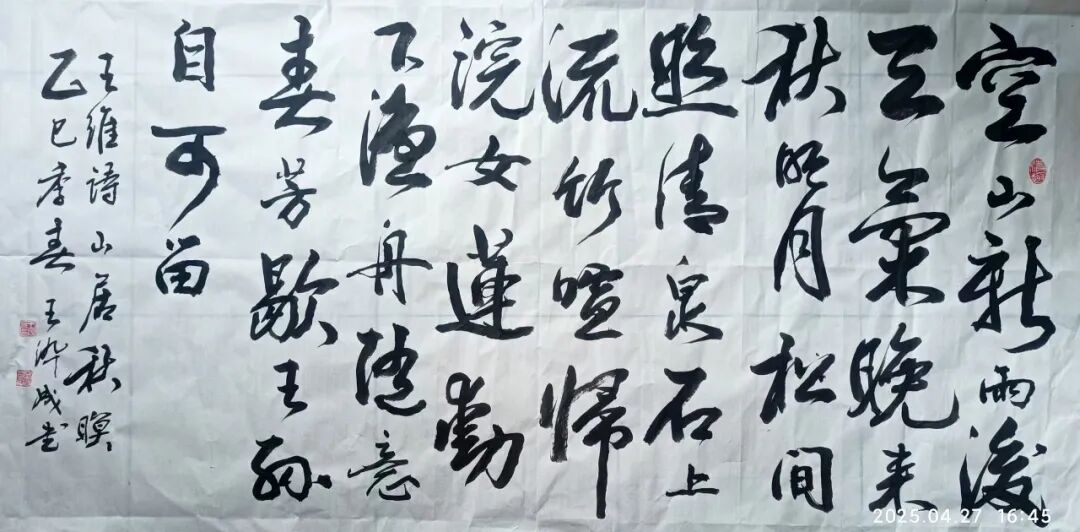 空山新雨後
天氣晚来
秋明月松间
照清泉石上
流竹喧歸
浣女蓮動
下漁舟随意
春芳歇王孫
自可留
王維詩山居秋暝
乙巳季春王成书
2025.04.27 16:45